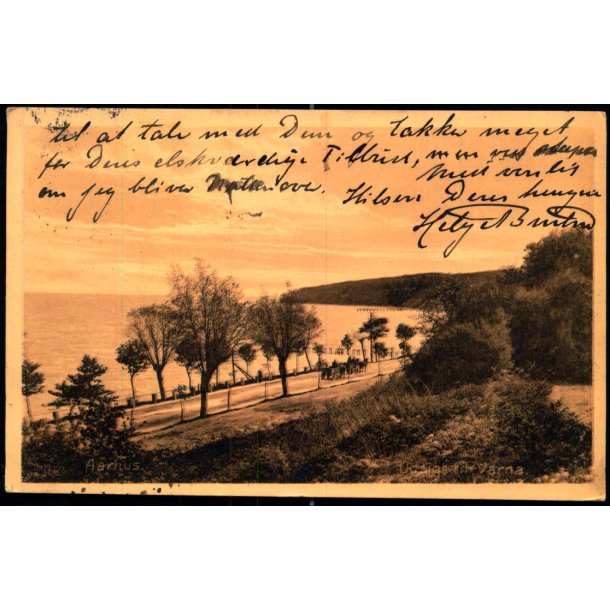 til at tale med Dem og takker meget
for Deres elskværdige Tilbud, men ved
om jeg bliver Med venlig
Hilsen Deres
Aarhus. Udsigt til Varna.